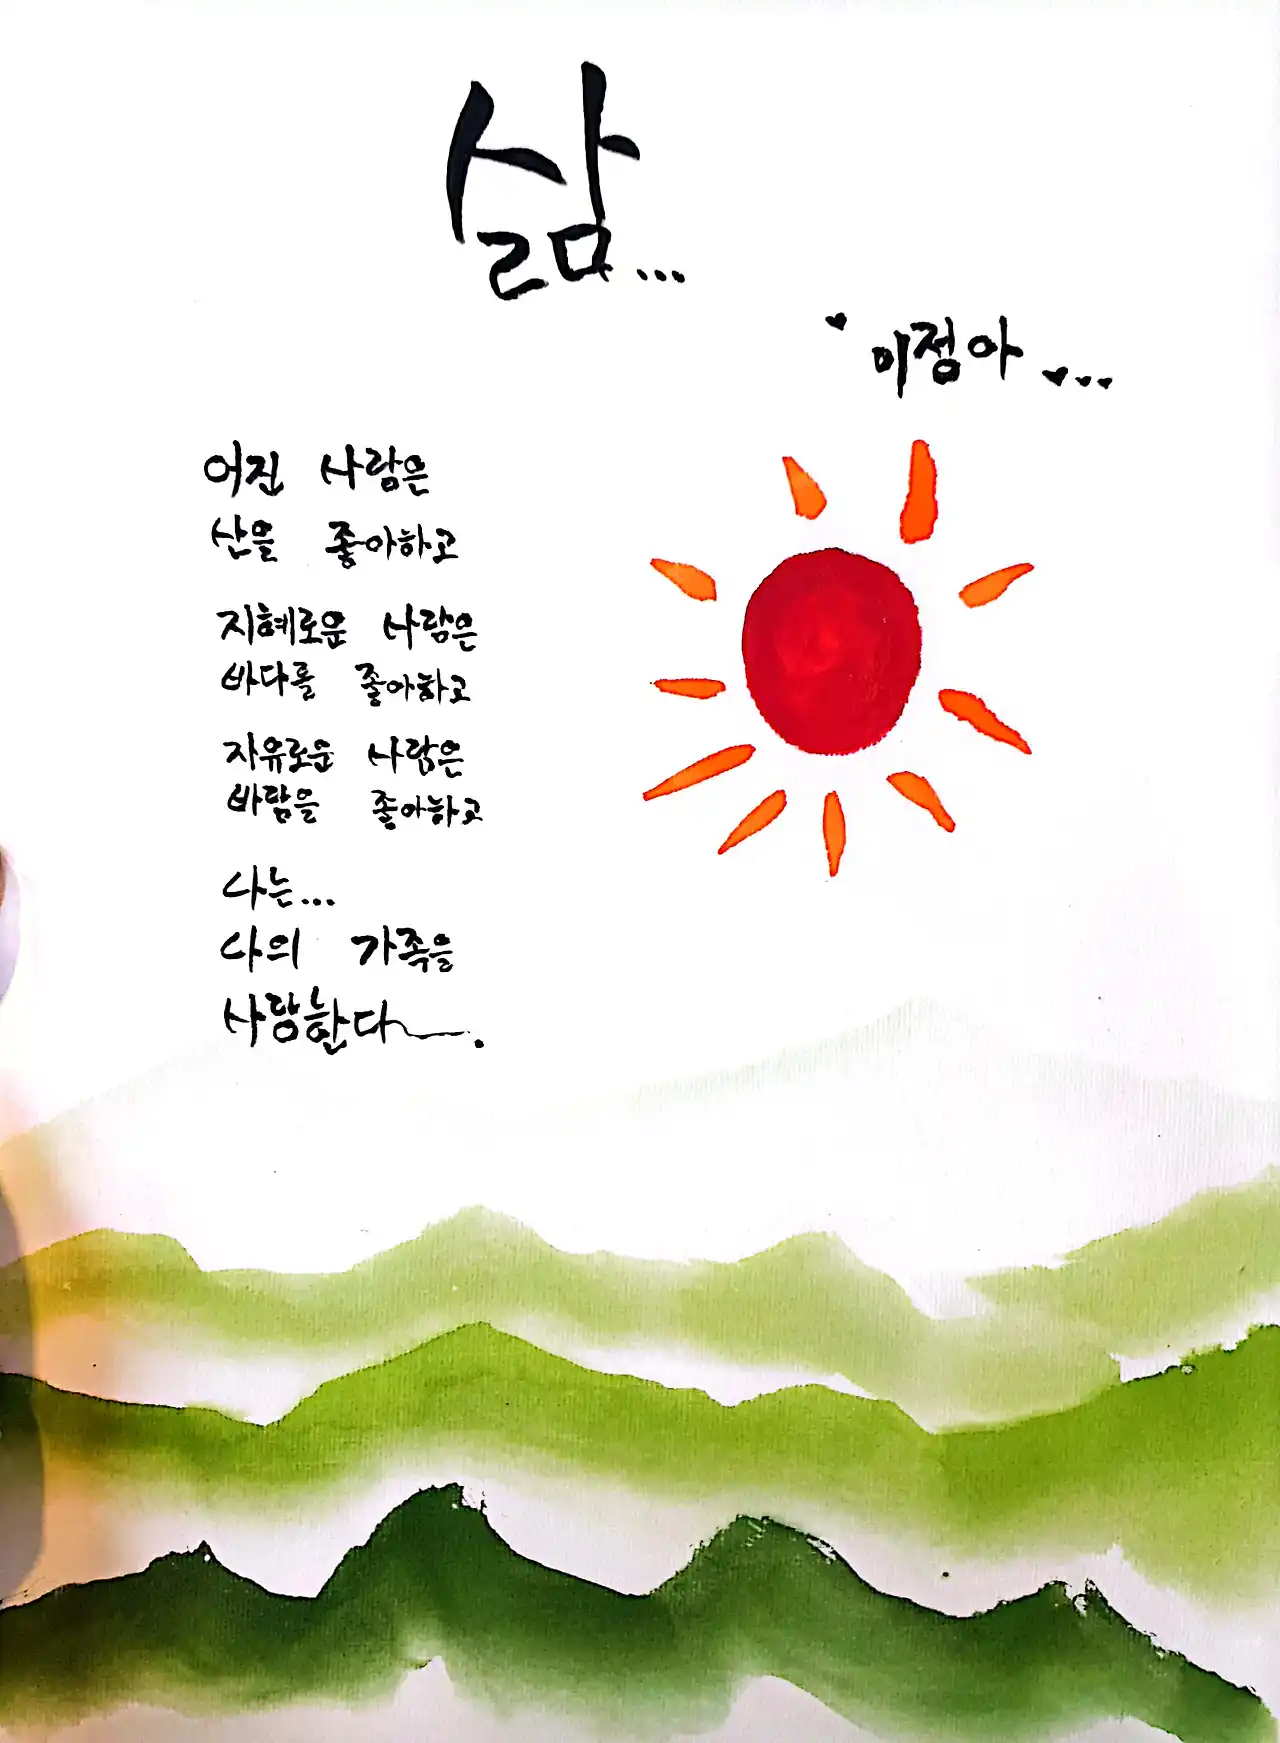 삶...
이정아...
어진 사람은
산을 좋아하고
지혜로운 사람은
바다를 좋아하고
자유로운 사람은
바람을 좋아하고
나는...
나의 가족을
사랑한다.